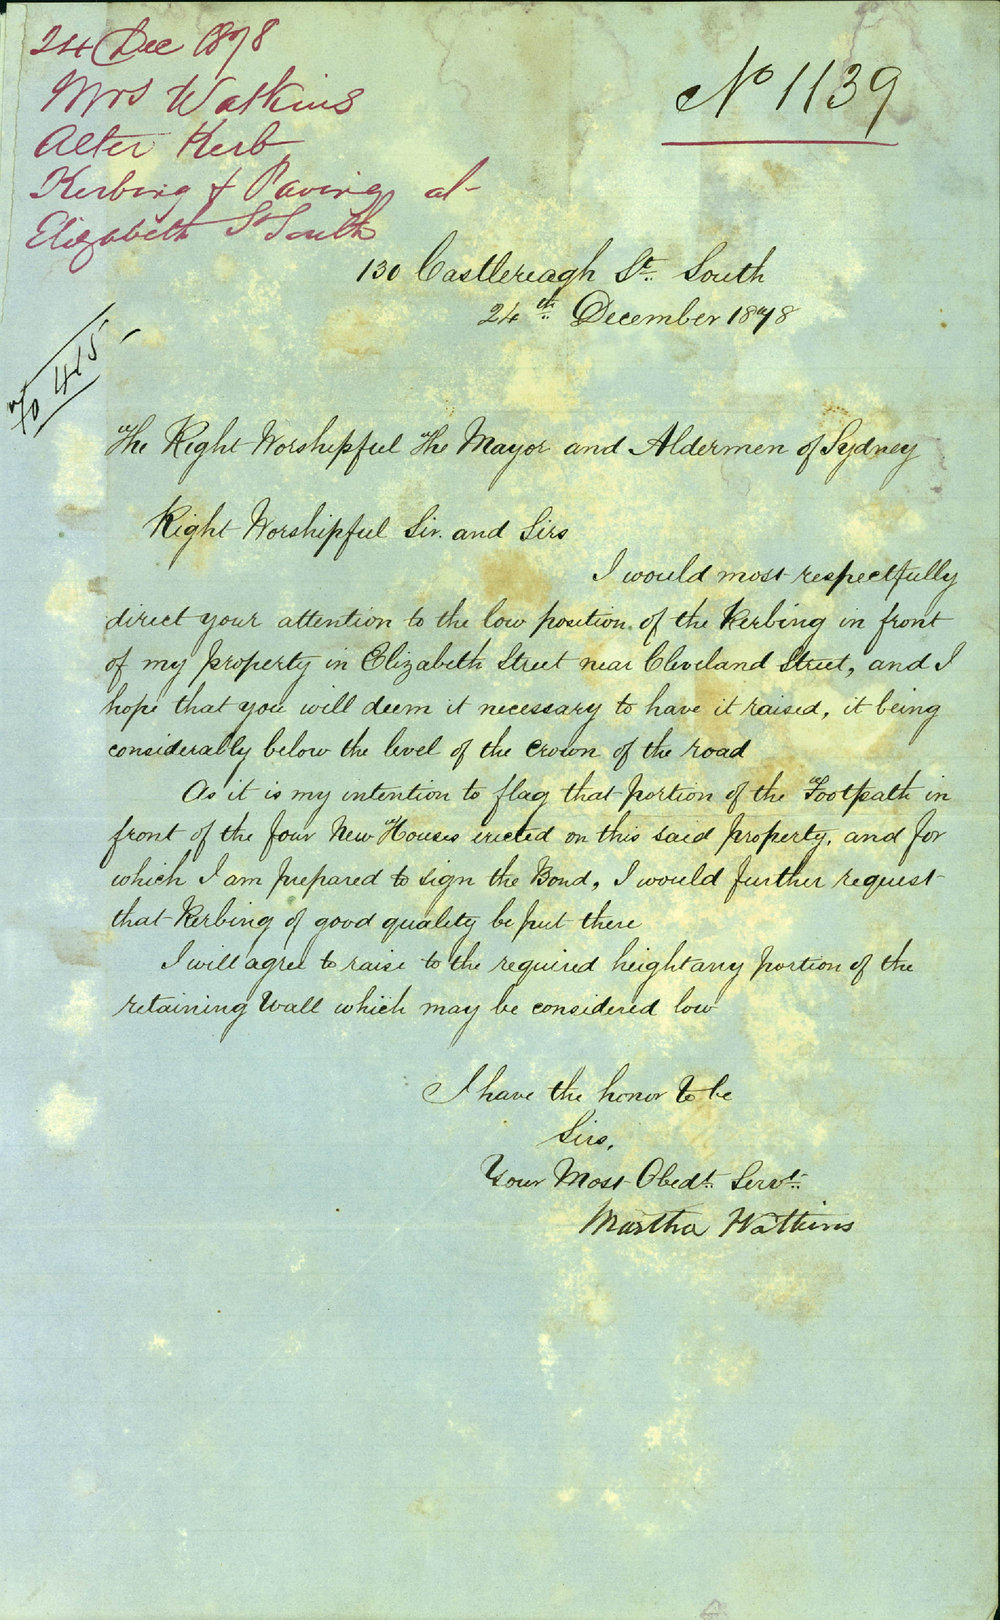 24 Dec 1878
Mrs Watkins
Alter Kerb
Kerbing & Paving at
Elizabeth St South
No 1139
130 Castlereagh St. South
24th December 1878
To 415
The Right Worshipful The Mayor and Aldermen of Sydney
Right Worshipful Sir. and Sirs
I would most respectfully
direct your attention to the low position of the Kerbing in front
of my property in Elizabeth Street near Cleveland Street, and I
hope that you will deem it necessary to have it raised, it being
considerably below the level of the Crown of the road
As it is my intention to flag that portion of the Footpath in
front of the four New Houses erected on this said property, and for
which I am prepared to sign the Bond, I would further request
that Kerbing of good quality be put there
I will agree to raise to the required height any portion of the
retaining Wall which may be considered low
I have the honor to be
Sirs,
Your Most Obedt. Servt.
Martha Watkins